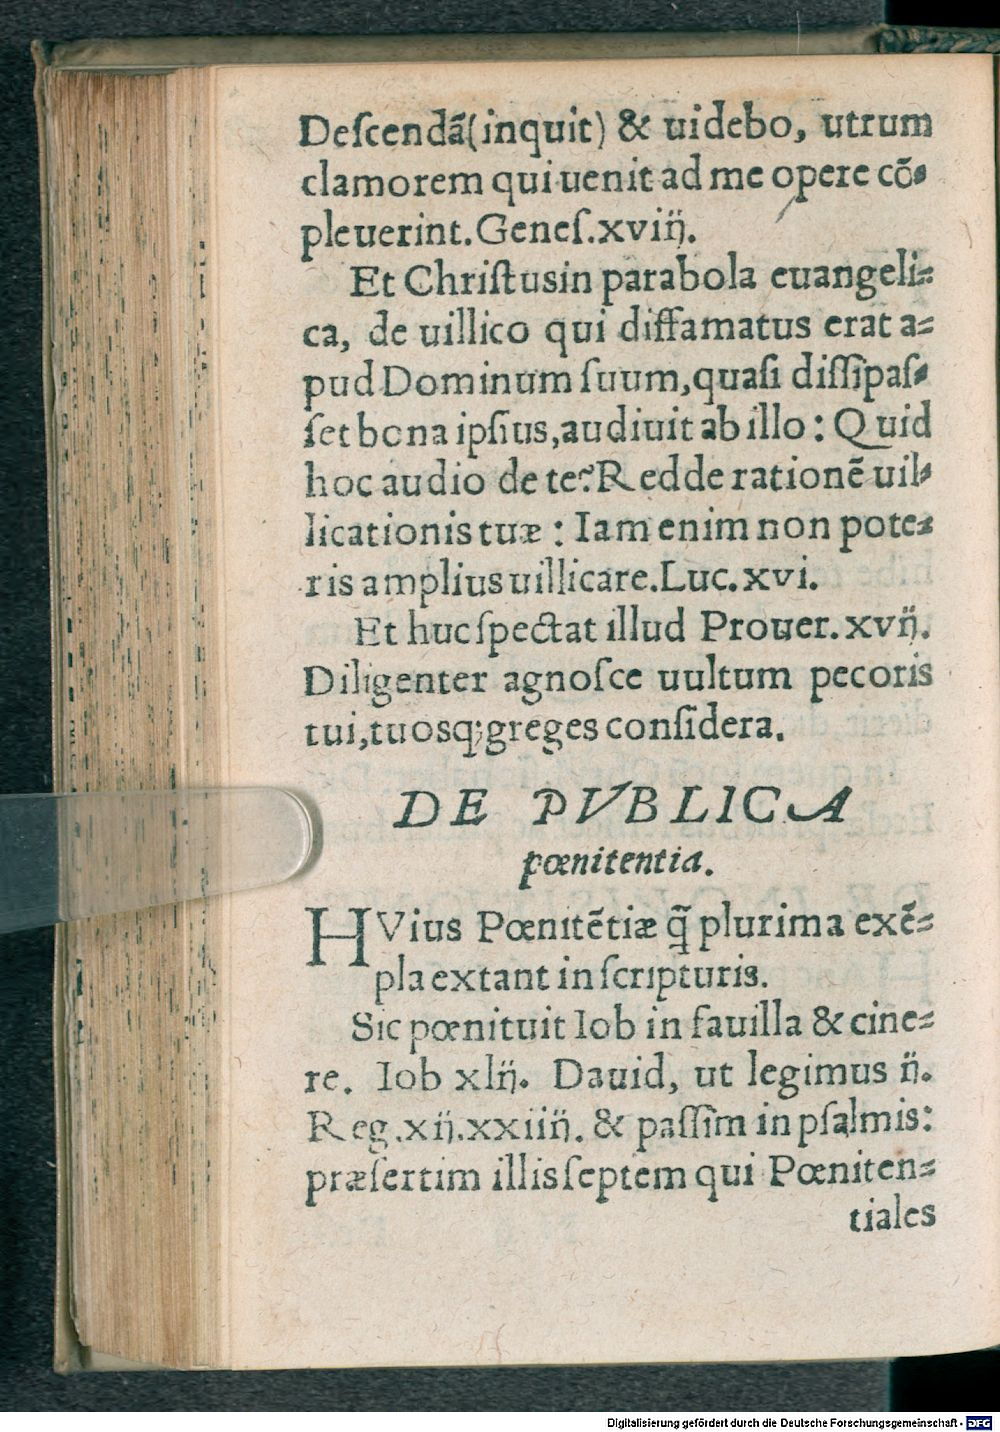 Deſcendã(inquit) & uidebo, utrum
clamorem qui uenit ad me opere cõ-
pleuerint. Geneſ. xviij.
Et Chriſtus in parabola euangeli-
ca, de uillico qui diffamatus erat a-
pud Dominum ſuum, quaſi diſſipaſ-
ſet bona ipſius, audiuit ab illo: Quid
hoc audio de te? Redde rationẽ uil-
licationis tuæ: Iam enim non pote-
ris amplius uillicare. Luc. xvi.
Et huc ſpectat illud Prouer. xvij.
Diligenter agnoſce uultum pecoris
tui, tuosq; greges conſidera.
DE PVBLICA
pœnitentia.
HVius Pœnitẽtiæ q̃ plurima exẽ-
pla extant in ſcripturis.
Sic pœnituit Iob in fauilla & cine-
re. Iob xlij. Dauid, ut legimus ij.
Reg. xij. xxiiij. & paſſim in pſalmis:
præſertim illis ſeptem qui Pœniten-
tiales
Digitalisierung gefördert durch die Deutsche Forschungsgemeinschaft - DFG